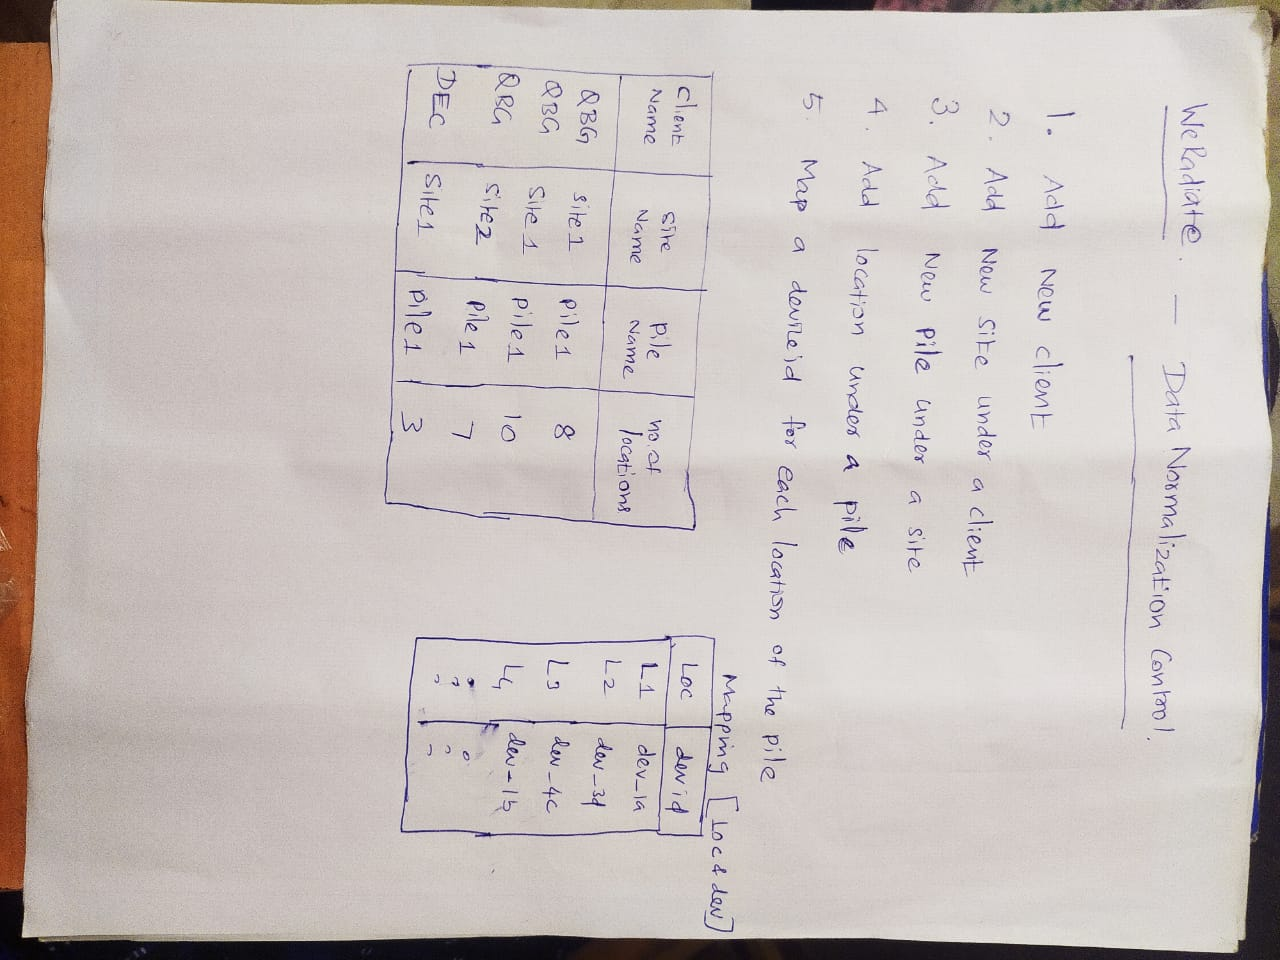 WeRadiate. — Data Normalization Control.
1. Add New client
2. Add New Site under a client
3. Add New Pile under a site
4. Add location under a pile
5. Map a deviceid for each location of the pile
Client Name | Site Name | Pile Name | no. of locations
QBG | Site1 | Pile1 | 8
QBG | Site1 | Pile1 | 10
QBG | Site2 | Pile1 | 7
DEC | Site1 | Pile1 | 3
Mapping [Loc & dev]
Loc | devid
L1 | dev_1a
L2 | dev_3d
L3 | dev_4c
L4 | dev_1b